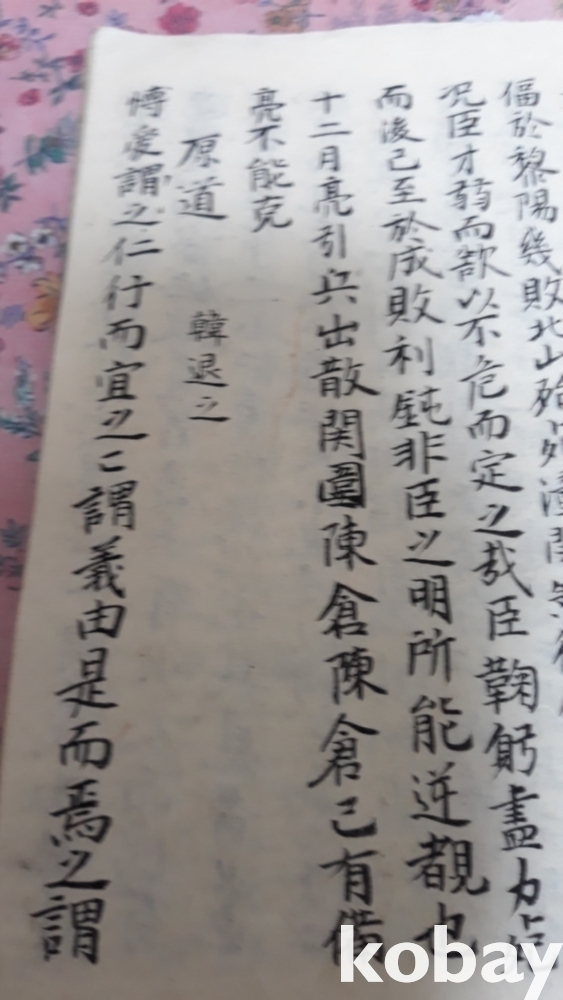 偪於黎陽幾敗北山殆死潼関
况臣才弱而欲以不危而定之哉臣鞠躬盡力死
而後已至於成敗利鈍非臣之明所能逆覩也
十二月亮引兵出散関圍陳倉陳倉已有備
亮不能克
原道 韓退之
博愛謂之仁行而宜之〻謂義由是而焉之謂
kobay